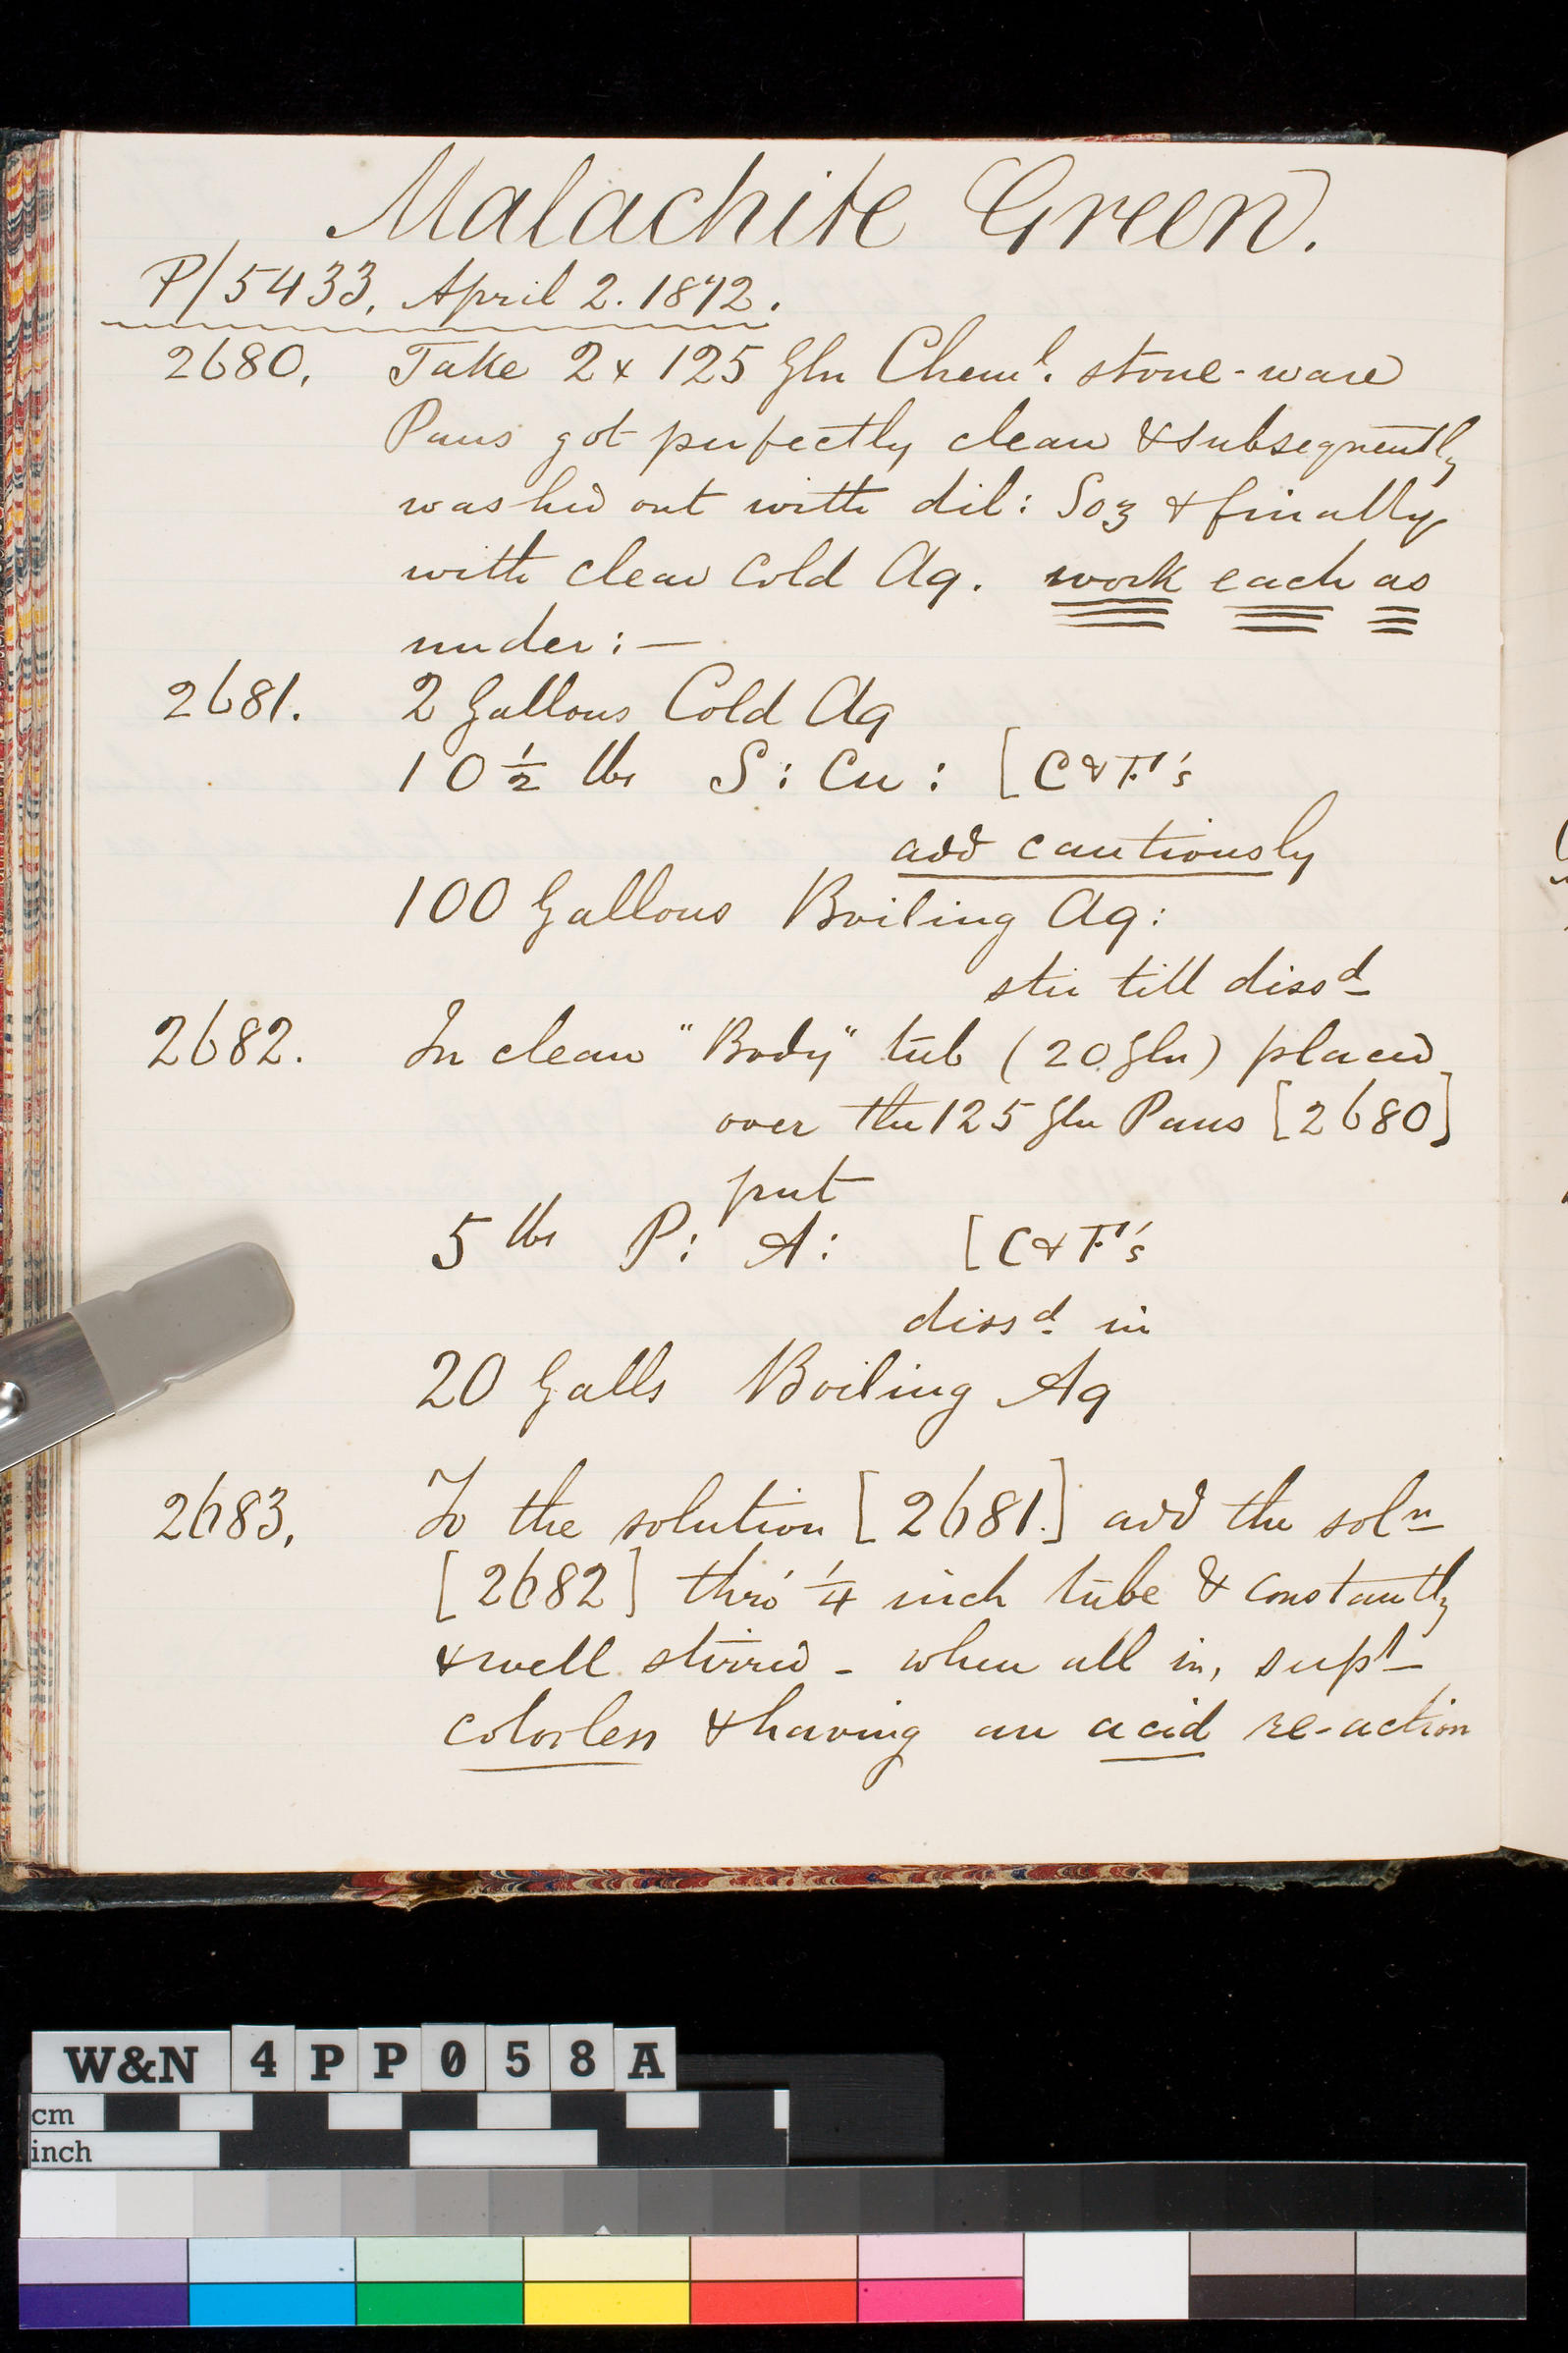 Malachite Green.
P/5433. April 2. 1872.
2680. Take 2 x 125 Gln Cheml. stone-ware
Pans got perfectly clean & subsequently
washed out with dil: So3 & finally
with clean Cold Aq. work each as
under:—
2681. 2 Gallons Cold Aq
10 1/2 lbs S: Cu: [C&F's
add cautiously
100 Gallons Boiling Aq:
stir till dissd
2682. In clean "Body" tub (20 Gln) placed
over the 125 Gln Pans [2680]
put
5 lbs P: A: [C&F's
dissd. in
20 Galls Boiling Aq
2683. To the solution [2681.] add the soln
[2682] thro' 1/4 inch tube & constantly
& well stirred - when all in, supt
colorless & having an acid re-action
W&N 4PP058A
cm
inch